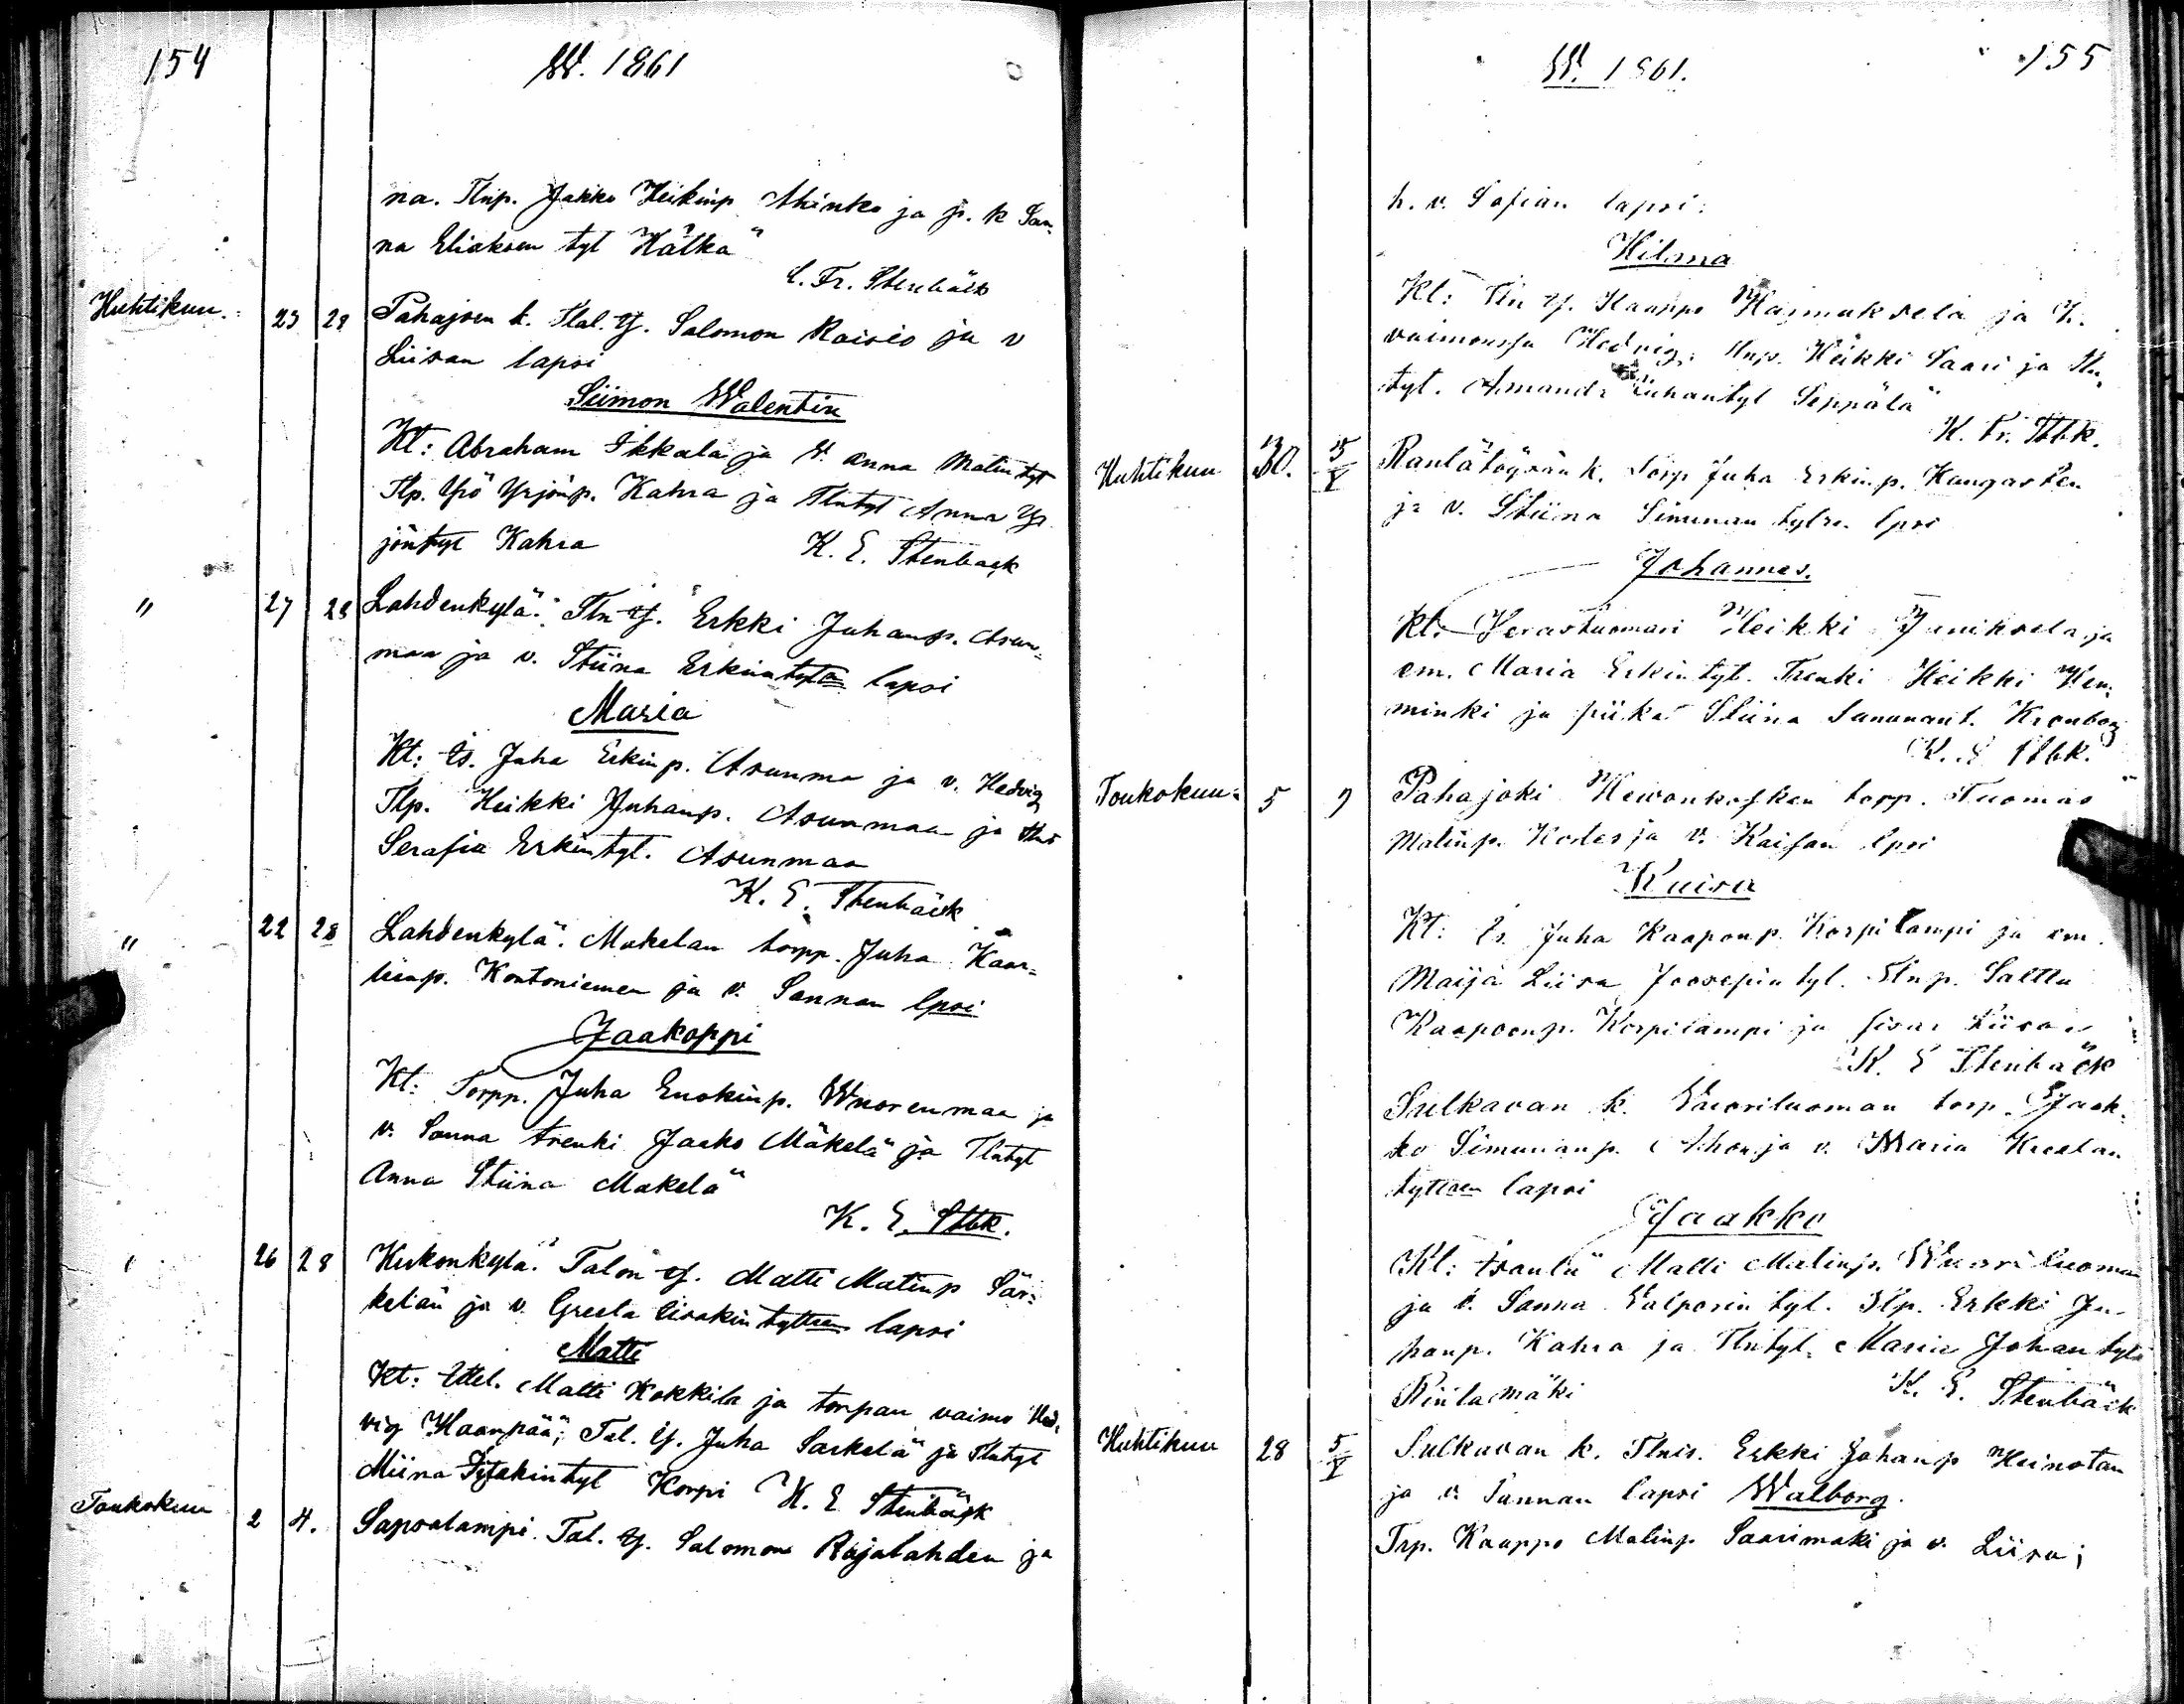 154
W. 1861
na. Tlnp. Jakko Heikinp Ahinko ja p. k San-
na Eliaksen tyt Hätkä
C. Fr. Stenbäck
Huhtikuu. 23 28 Pahajoen k. Tlal. Ij. Salomon Raisio ja v
Liisan lapsi
Siimon Walentin
Kt: Abraham Ikkala ja v. Anna Matintyt
Tlp. Yrö Yrjönp. Kahra ja Tlntyt Anna Yr-
jöntyt Kahra K. E. Stenback
" 27 28 Lahdenkylä. Tln Ij. Erkki Juhanp. Asun-
maa ja v. Stiina Erkintytön lapsi
Maria
Kt: Is. Juha Erkinp. Asunma ja v. Hedvig
Tlp. Heikki Juhanp. Asunmaa ja
Serafia Erkintyt. Asunmaa
K. E. Stenbäck
" 22 28 Lahdenkylä. Mäkelan torpp. Juha Kaar-
linp. Kontoniemen ja v. Sannan lpsi
Jaakoppi
Kt: Torpp. Juha Enokinp. Wuorenmaa ja
v. Sanna trenki Jaako Mäkelä ja Tlntyt
Anna Stiina Makelä
K. E. Stbk.
" 26 28 Kukonkylä. Talon Ij. Matti Matinp Sär-
kelän ja v. Greeta Eisakin tyttren lapsi
Matti
Kt: Ittel. Matti Kokkila ja torpan vaimo Hed-
vig Haanpää; Tal. Ij. Juha Sarkelä ja Tlntyt
Miina Isakintyt Korpi K. E. Stenbäck
Toukokuu 2 4. Sapsalampi. Tal. Ij. Salomon Rajalahden ja
W. 1861.
155
h. v. Sofian lapsi:
Hilma
Kt: Tln Ij. Kaappo Hajmuksela ja h.
vaimonsa Hedvig; Tlnp. Heikki Saari ja Tln-
tyt. Amanda Juhantyt Seppälä
K. Fr. Stbk.
Huhtikuu 30. 5/V Rantatöysän k. Torp Juha Erkinp. Kangasten
ja v. Stiina Simunan tytr. lpsi
Johannes.
Kt: Herastuomari Heikki Juniksela ja
em. Maria Erkintyt. Trenki Heikki Hen-
minki ja piika Stiina Kronborg
K. E Stbk.
Toukokuu 5 9 Pahajoki Hewonkosken torpp. Tuomas
Matinp. Kodes ja v. Kaisan lpsi
Kaisa
Kt: Is. Juha Kaaponp. Korpilampi ja em.
Maija Liisa Joosepin tyt. Tlnp. Salttu
Kaaponp. Korpilampi ja sisar Liisa
K. E Stenbäck
Sulkavan k. Vuoriluoman torp. Jaak-
ko Simunanp. Ahon ja v. Maria Kreetan
tyttren lapsi
Jaakko
Kt: Isäntä Matti Matinp. Wuoriluoma
ja v. Sanna tyt. Tlp. Erkki Ju-
hanp. Kahra ja Tlntyt. Maria Johantyt
Riintamäki K. E. Stenbäck
Huhtikuu 28 5/V Sulkavan k. Tlnis. Erkki Johanp Heinotan
ja v. Sannan lapsi Walborg.
Trp. Kaappo Matinp. Saarimaki ja v. Liisa;